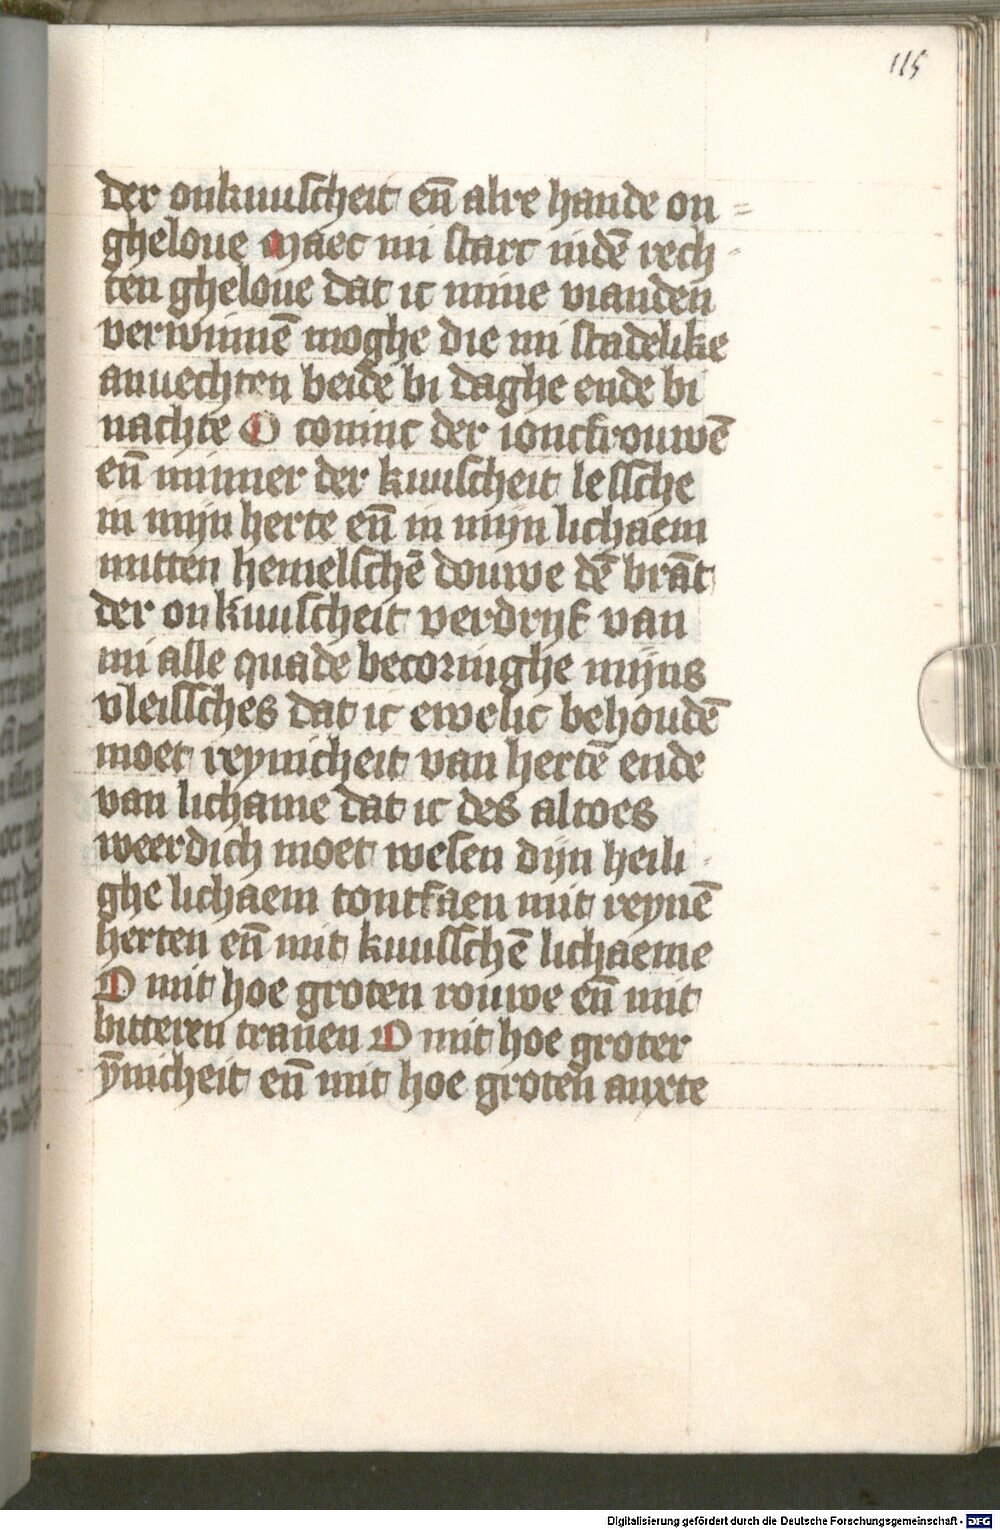 115
der onkuuscheit en̄ alre hande on=
gheloue Maec mi starc indē rech-
ten gheloue dat ic mine vianden
verwinnē moghe die mi stadelike
anuechten beide bi daghe ende bi
nachte O coninc der ioncfrouwē
en̄ minner der kuuscheit lessche
in mijn herte en̄ in mijn lichaem
mitten hemelschē douwe dē brāt
der onkuuscheit verdrijf van
mi alle quade becoringhe mijns
vleissches dat ic ewelic behoudē
moet reynicheit van hertē ende
van lichame dat ic des altoes
weerdich moet wesen dijn heili-
ghe lichaem tontfaen mit reynē
herten en̄ mit kuusschē lichaeme
O mit hoe groten rouwe en̄ mit
bitteren tranen O mit hoe groter
ȳnicheit en̄ mit hoe groten anxte
Digitalisierung gefördert durch die Deutsche Forschungsgemeinschaft - DFG